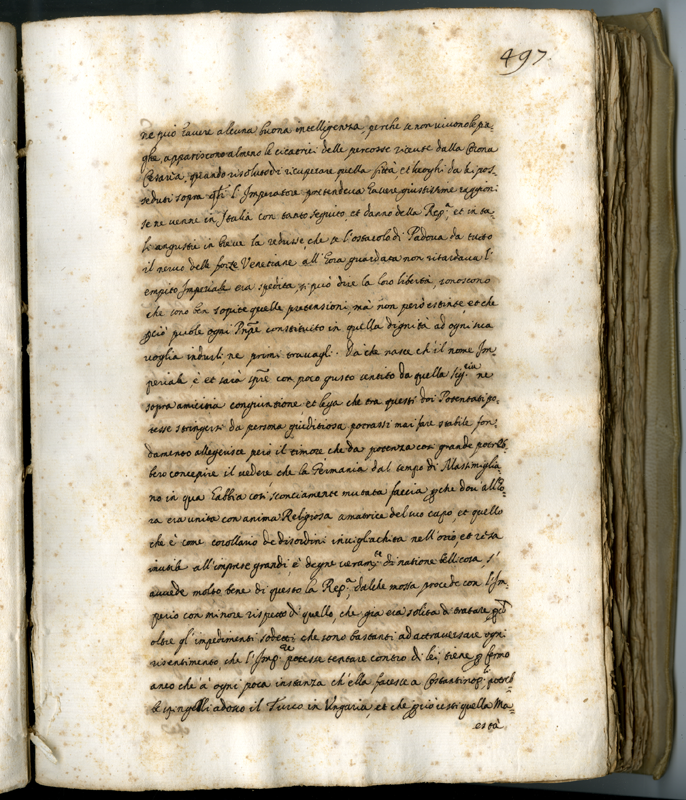 497.
ne può havere alcuna buona intelligenza, perche se non vivono le pia=
ghe, appariscono almeno le cicatrici delle percosse ricevute dalla Corona
Cesarea, quando risolutosi di ricuperare quella Città, et luoghi da lei pos=
seduti sopra qli l'Imperatore pretendeva havere giustissime raggioni
se ne venne in Italia con tanto seguito, et danno della Rep.a, et in ta=
li angustie in breve la redusse, che se l'ostacolo di Padova da tutto
il nervo delle forze Venetiane all'hora guardata non ritardava l'
empito Imperiale era spedita, si può dire la loro libertà, conoscono
che sono ben sopite quelle pretensioni, mà non però estinte, et che
perciò puole ogni Pnpe constituito in quella dignità ad ogni sua
voglia indurli ne primi travagli. Da che nasce ch'il nome Im=
periale è et sarà spre con poco gusto sentito da quella Sig.ria ne
sopra amicitia congiuntione, et lega che tra questi doi Potentati po=
tesse stringersi da persona giuditiosa potrassi mai fare stabile fon=
damento allegerisce però il timore che da potenza così grande potreb=
bero concepire il vedere, che la Germania dal tempo di Massimiglia=
no in qua habbia così sconciamente mutata faccia perche dove all'ho=
ra era unita con anima Religiosa amatrice del suo capo, et quello
che è come corollario de disordini invigliachita nell'otio, et resa
inutile all'imprese grandi, e degne veram.te di natione bellicosa s'
avvede molto bene di questo la Rep.a, dalche mossa procede con l'Im=
perio con minore rispetto di quello, che già era solita di trattare, perche
oltre gl'impedimenti sodetti che sono bastanti ad attraversare ogni
risentimento, che l'Imp.re potesse tentare contro di lei, tiene per fermo
anco che à ogni poca instanza ch'ella facesse a Costantinop.li potreb=
be spingelli adosso il Turco in Ungaria, et che perciò resti quella Ma=
està